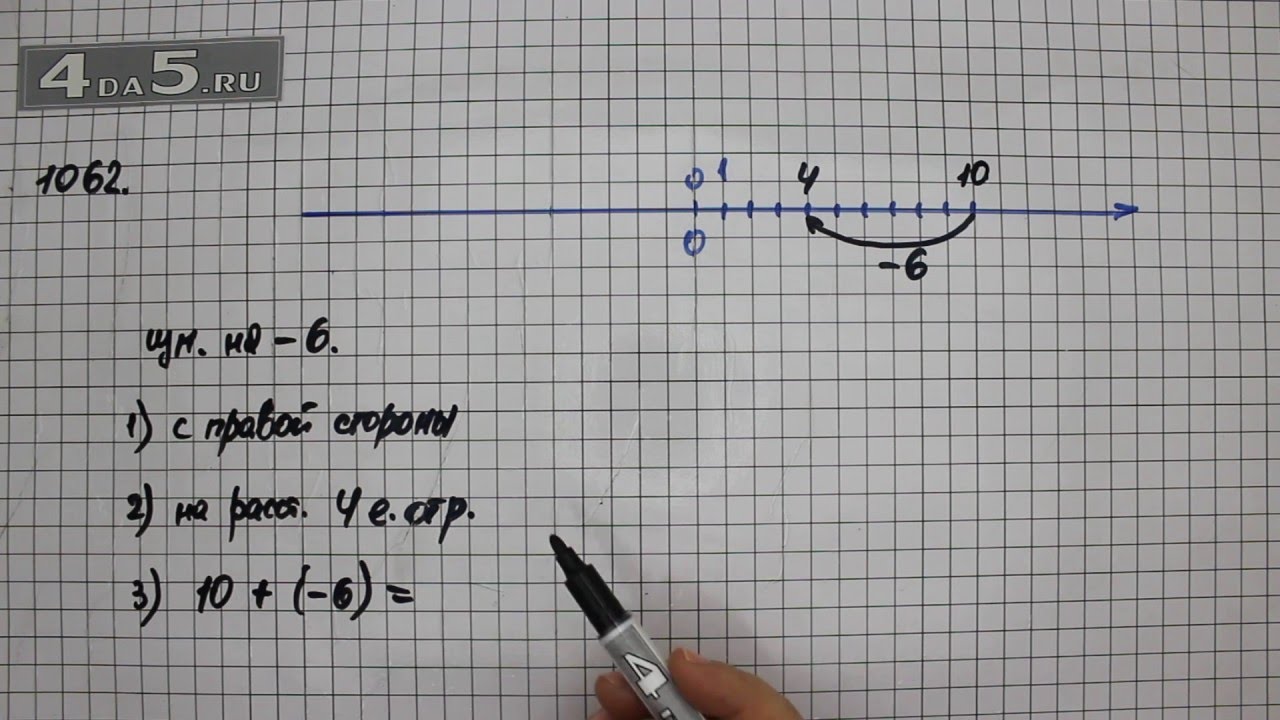 4DA5.RU
1062.
0 1 4 10
0
-6
изм. на -6.
1) с правой стороны
2) на расст. 4 е. отр.
3) 10 + (-6) =
4